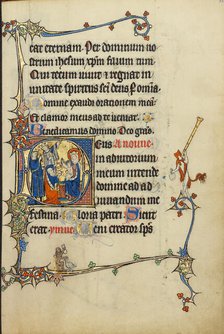 cat eternam. Per dominum no
strum ihesum xp̄m filium tuum.
Qui tecum uiuit et regnat in
unitate spiritus sancti deus. Domine exaudi orationem meā
Et clamor meus ad te ueniat.
Benedicamus domino Deo gras
A none
eus
in adiutorium
meum intende
domine ad ad
iuuandum me
festina Gloria patri Sicut
erat ympne Ueni creator sps